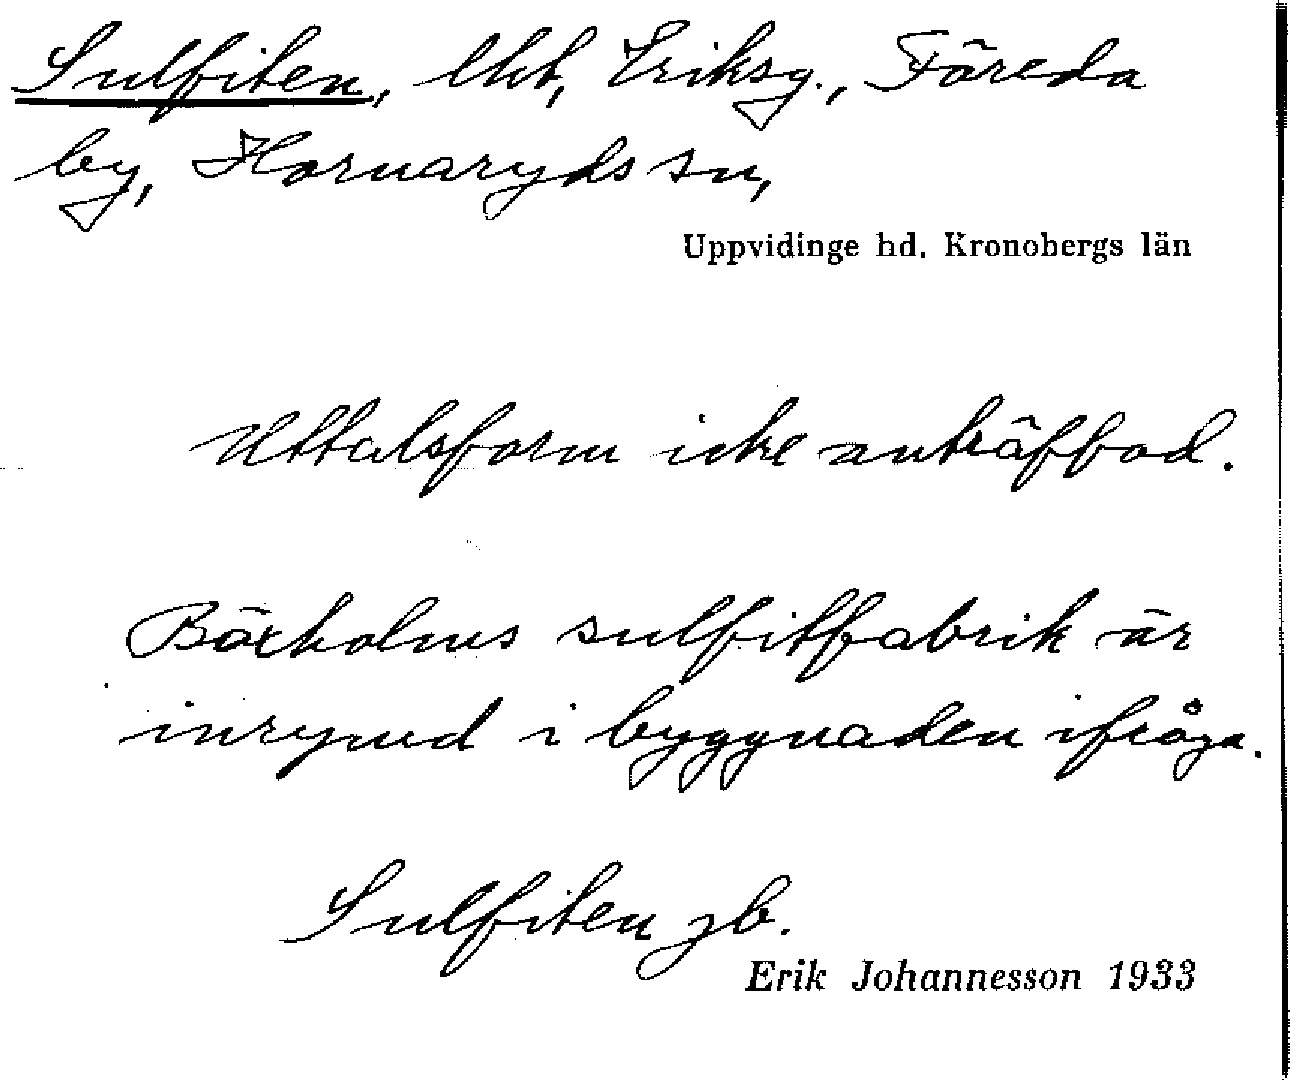 Sulfiten, lht, Eriksg., Föreda
by, Hornaryds sn,
Uppvidinge hd. Kronobergs län
Uttalsform icke anträffad.
Böksholms sulfitfabrik är
inrymd i byggnaden ifråga.
Sulfiten jb.
Erik Johannesson 1933